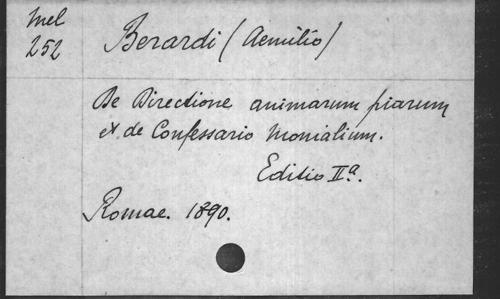 Mel
252
Berardi (Aemilio)
De Directione animarum piarum
et de Confessario Monialium.
Editio IIa.
Romae. 1890.